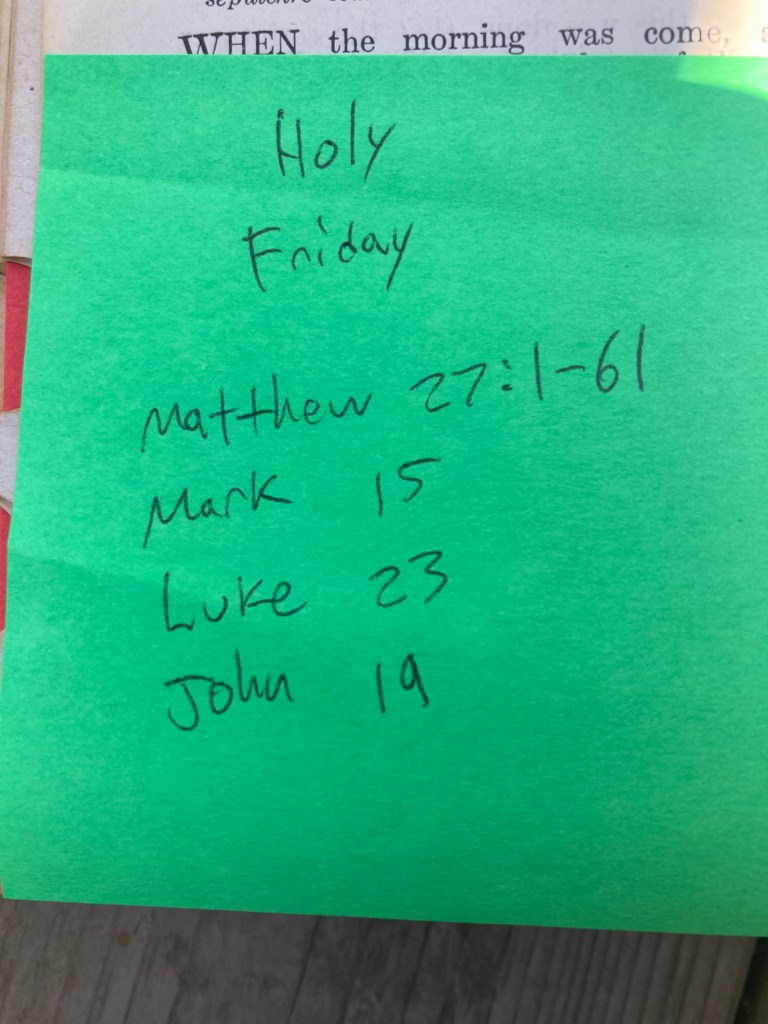 WHEN the morning was come,
Holy
Friday
Matthew 27:1-61
Mark 15
Luke 23
John 19